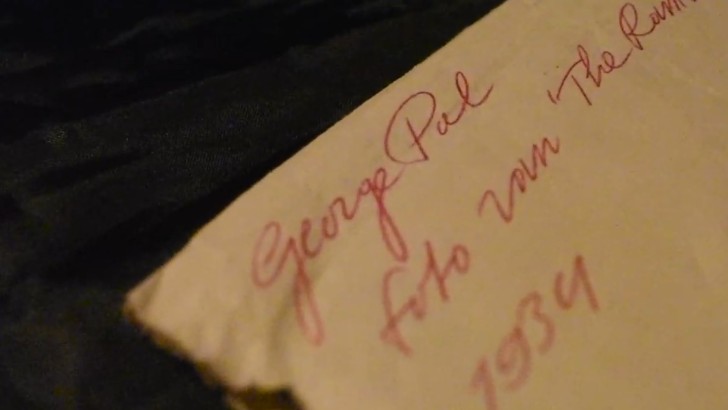 George Pal
foto van "The
1934